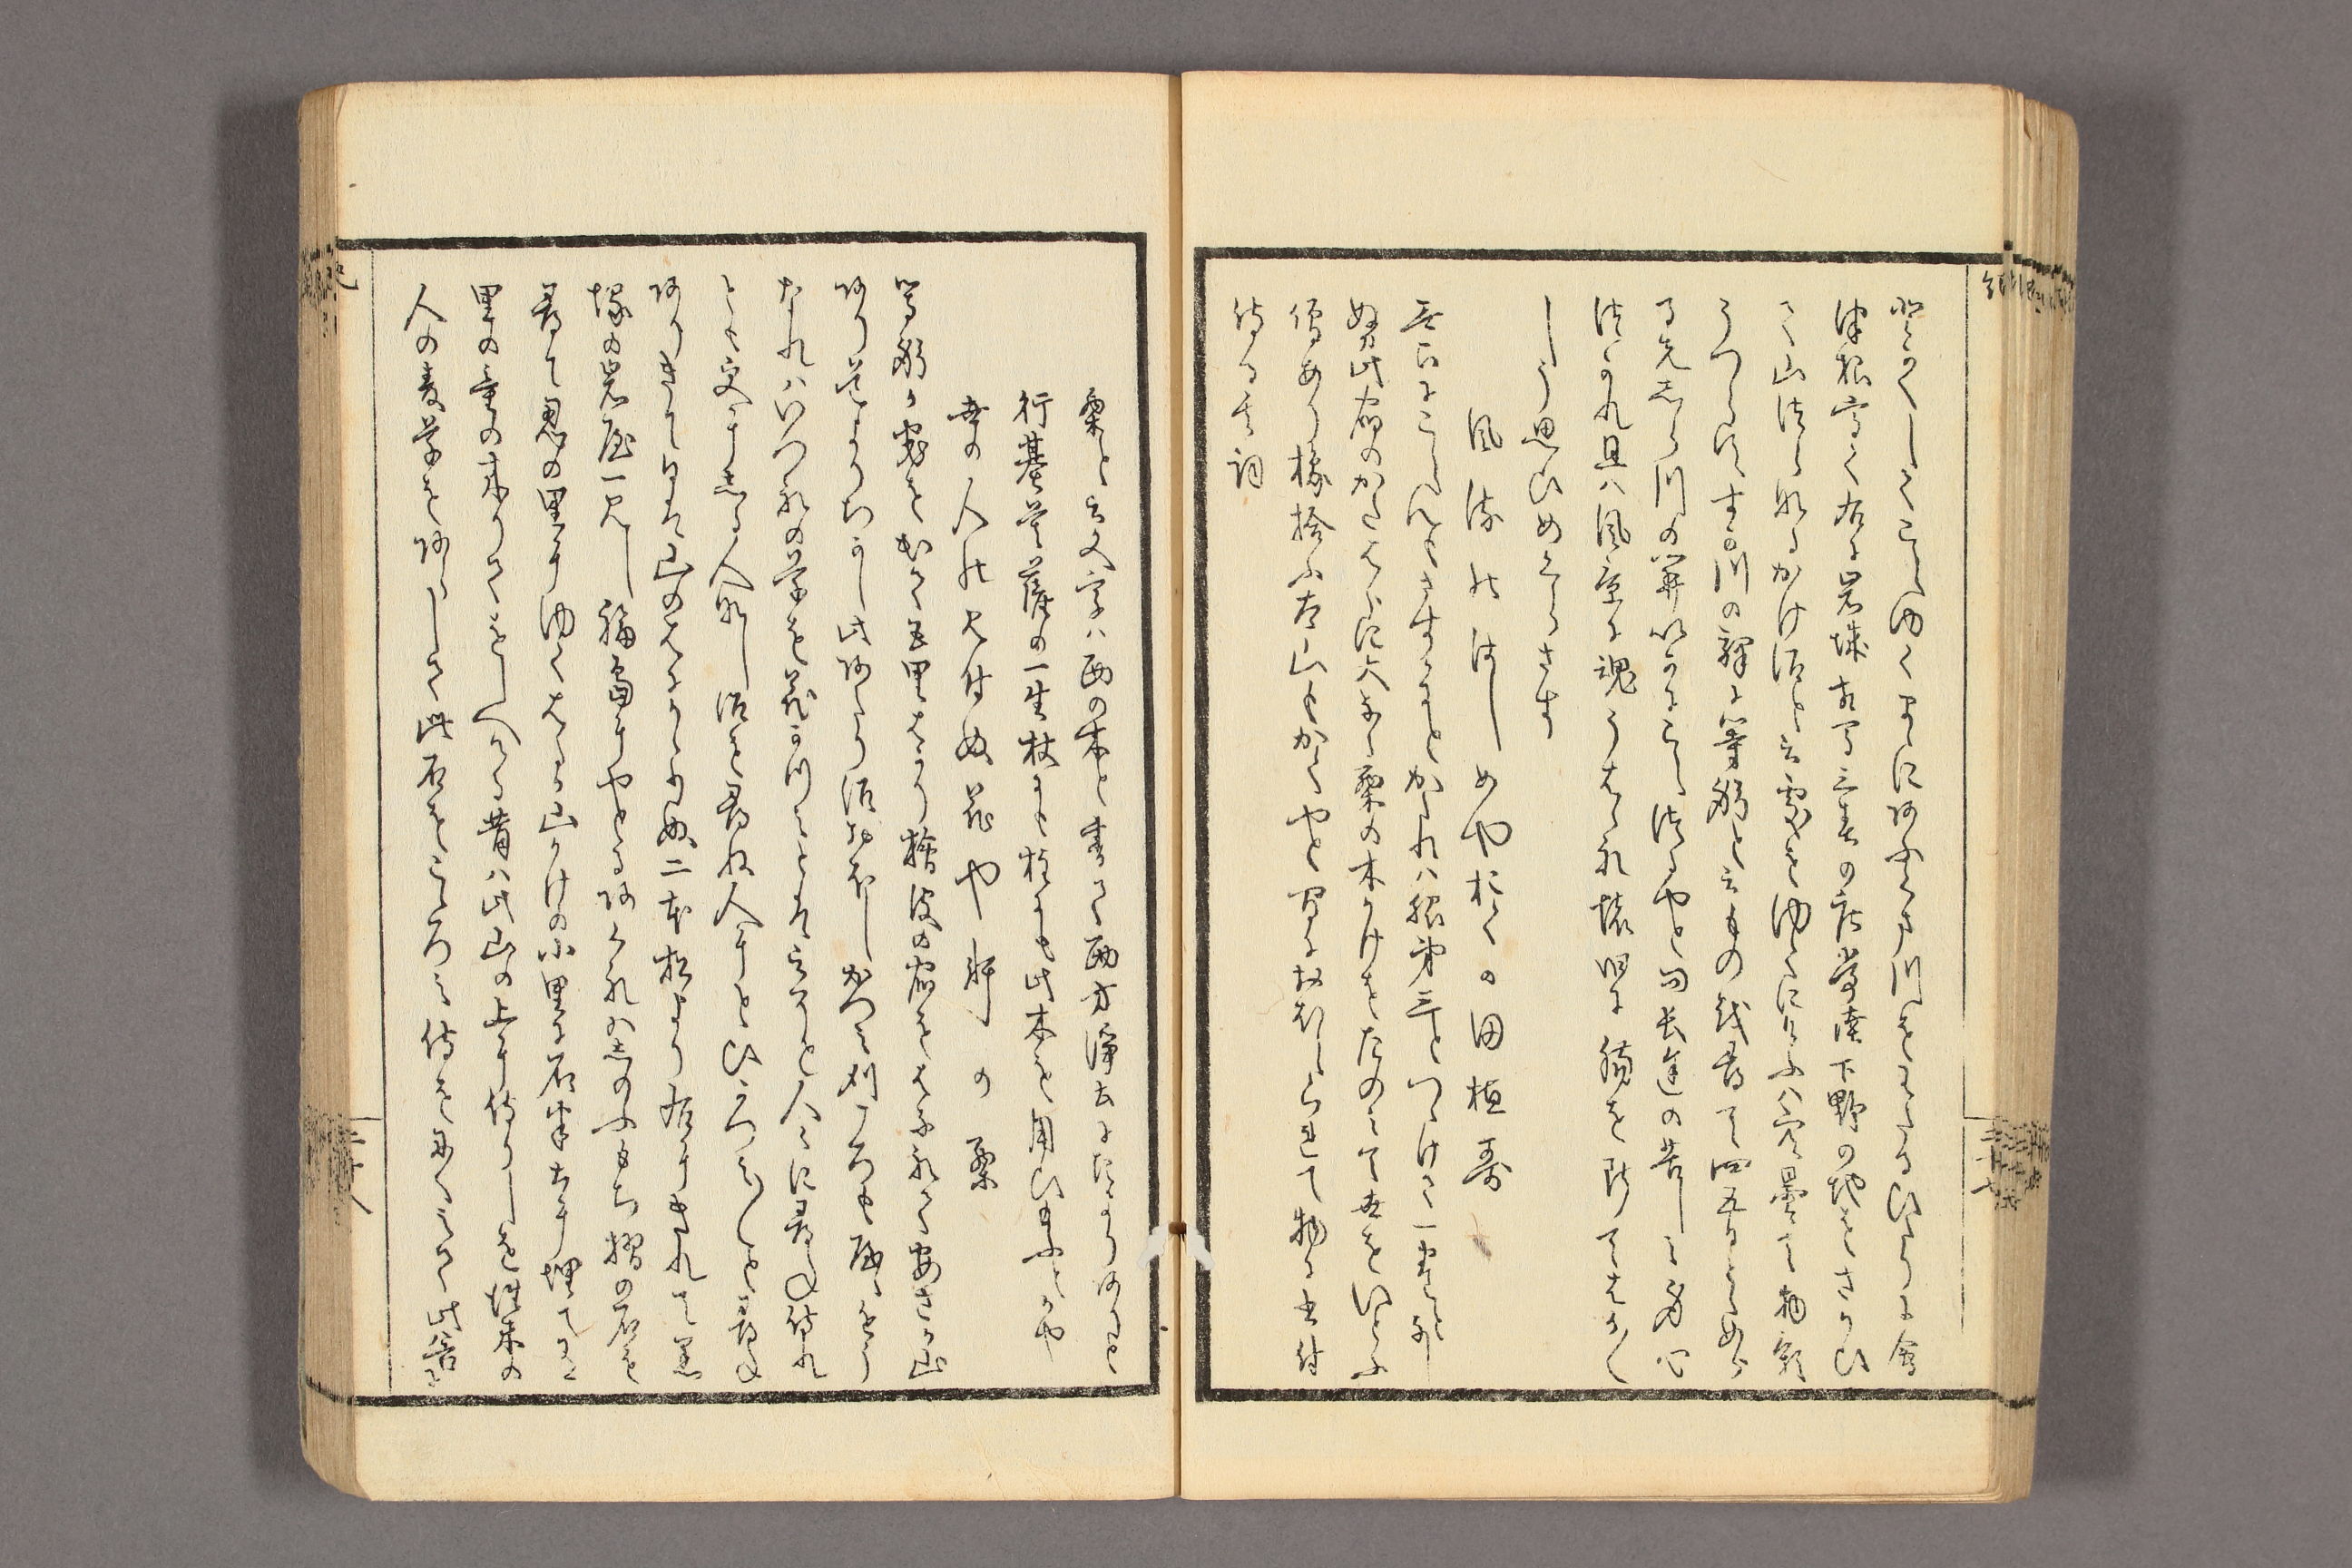 とかくしてこえ行まゝにあふくま川をわたる左に会
津根高く右に岩城相馬三春の庄常陸下野の地をさかひ
て山つらなるかけ沼と云所を行にけふは空曇て物影
うつらすすか川の駅に等窮といふものを尋て四五日とゝめら
る先しら川の関いかにこえつるやと問長途のくるしみ身心
つかれ且は風景に魂うははれ懐旧に腸を断てはか〳〵
しう思ひめくらさす
風流の はしめやおくの田植哥
無下にこえんもさすかにとかたれは脇第三とつゝけて一巻となし
ぬ此宿のかたはらに大なる栗の木かけをたのみて世をいとふ
僧あり橡拾ふ太山もかくやと間に覚られて物に書付
侍る其詞
栗といふ文字は西の木と書て西方浄土にたよりありと
行基菩薩の一生杖にも柱にも此木を用ひ給ふとかや
世の人の見付ぬ花や軒の栗
等窮か宅を出て五里はかり桧皮の宿をはなれてあさか山
ありみちよりちかし此あたり沼おほしかつみ刈ころもやゝちかう
なれはいつれの草を花かつみとはいふそと人々に尋侍れ
とも更にしる人なし沼を尋ね人にとひかつみ〳〵と尋
ありきて日は山のはにかゝりぬ二本松より右にきれて黒
塚の岩屋一見し福島にやとるあくれはしのふもち摺の石を
尋て忍ふの里に行はるか山かけの小里に石半土に埋てあり
里の童の来りてをしへける昔は此山の上に侍りしを往来の
人の麦草をあらして此石をこゝろみ侍をにくみて此谷に